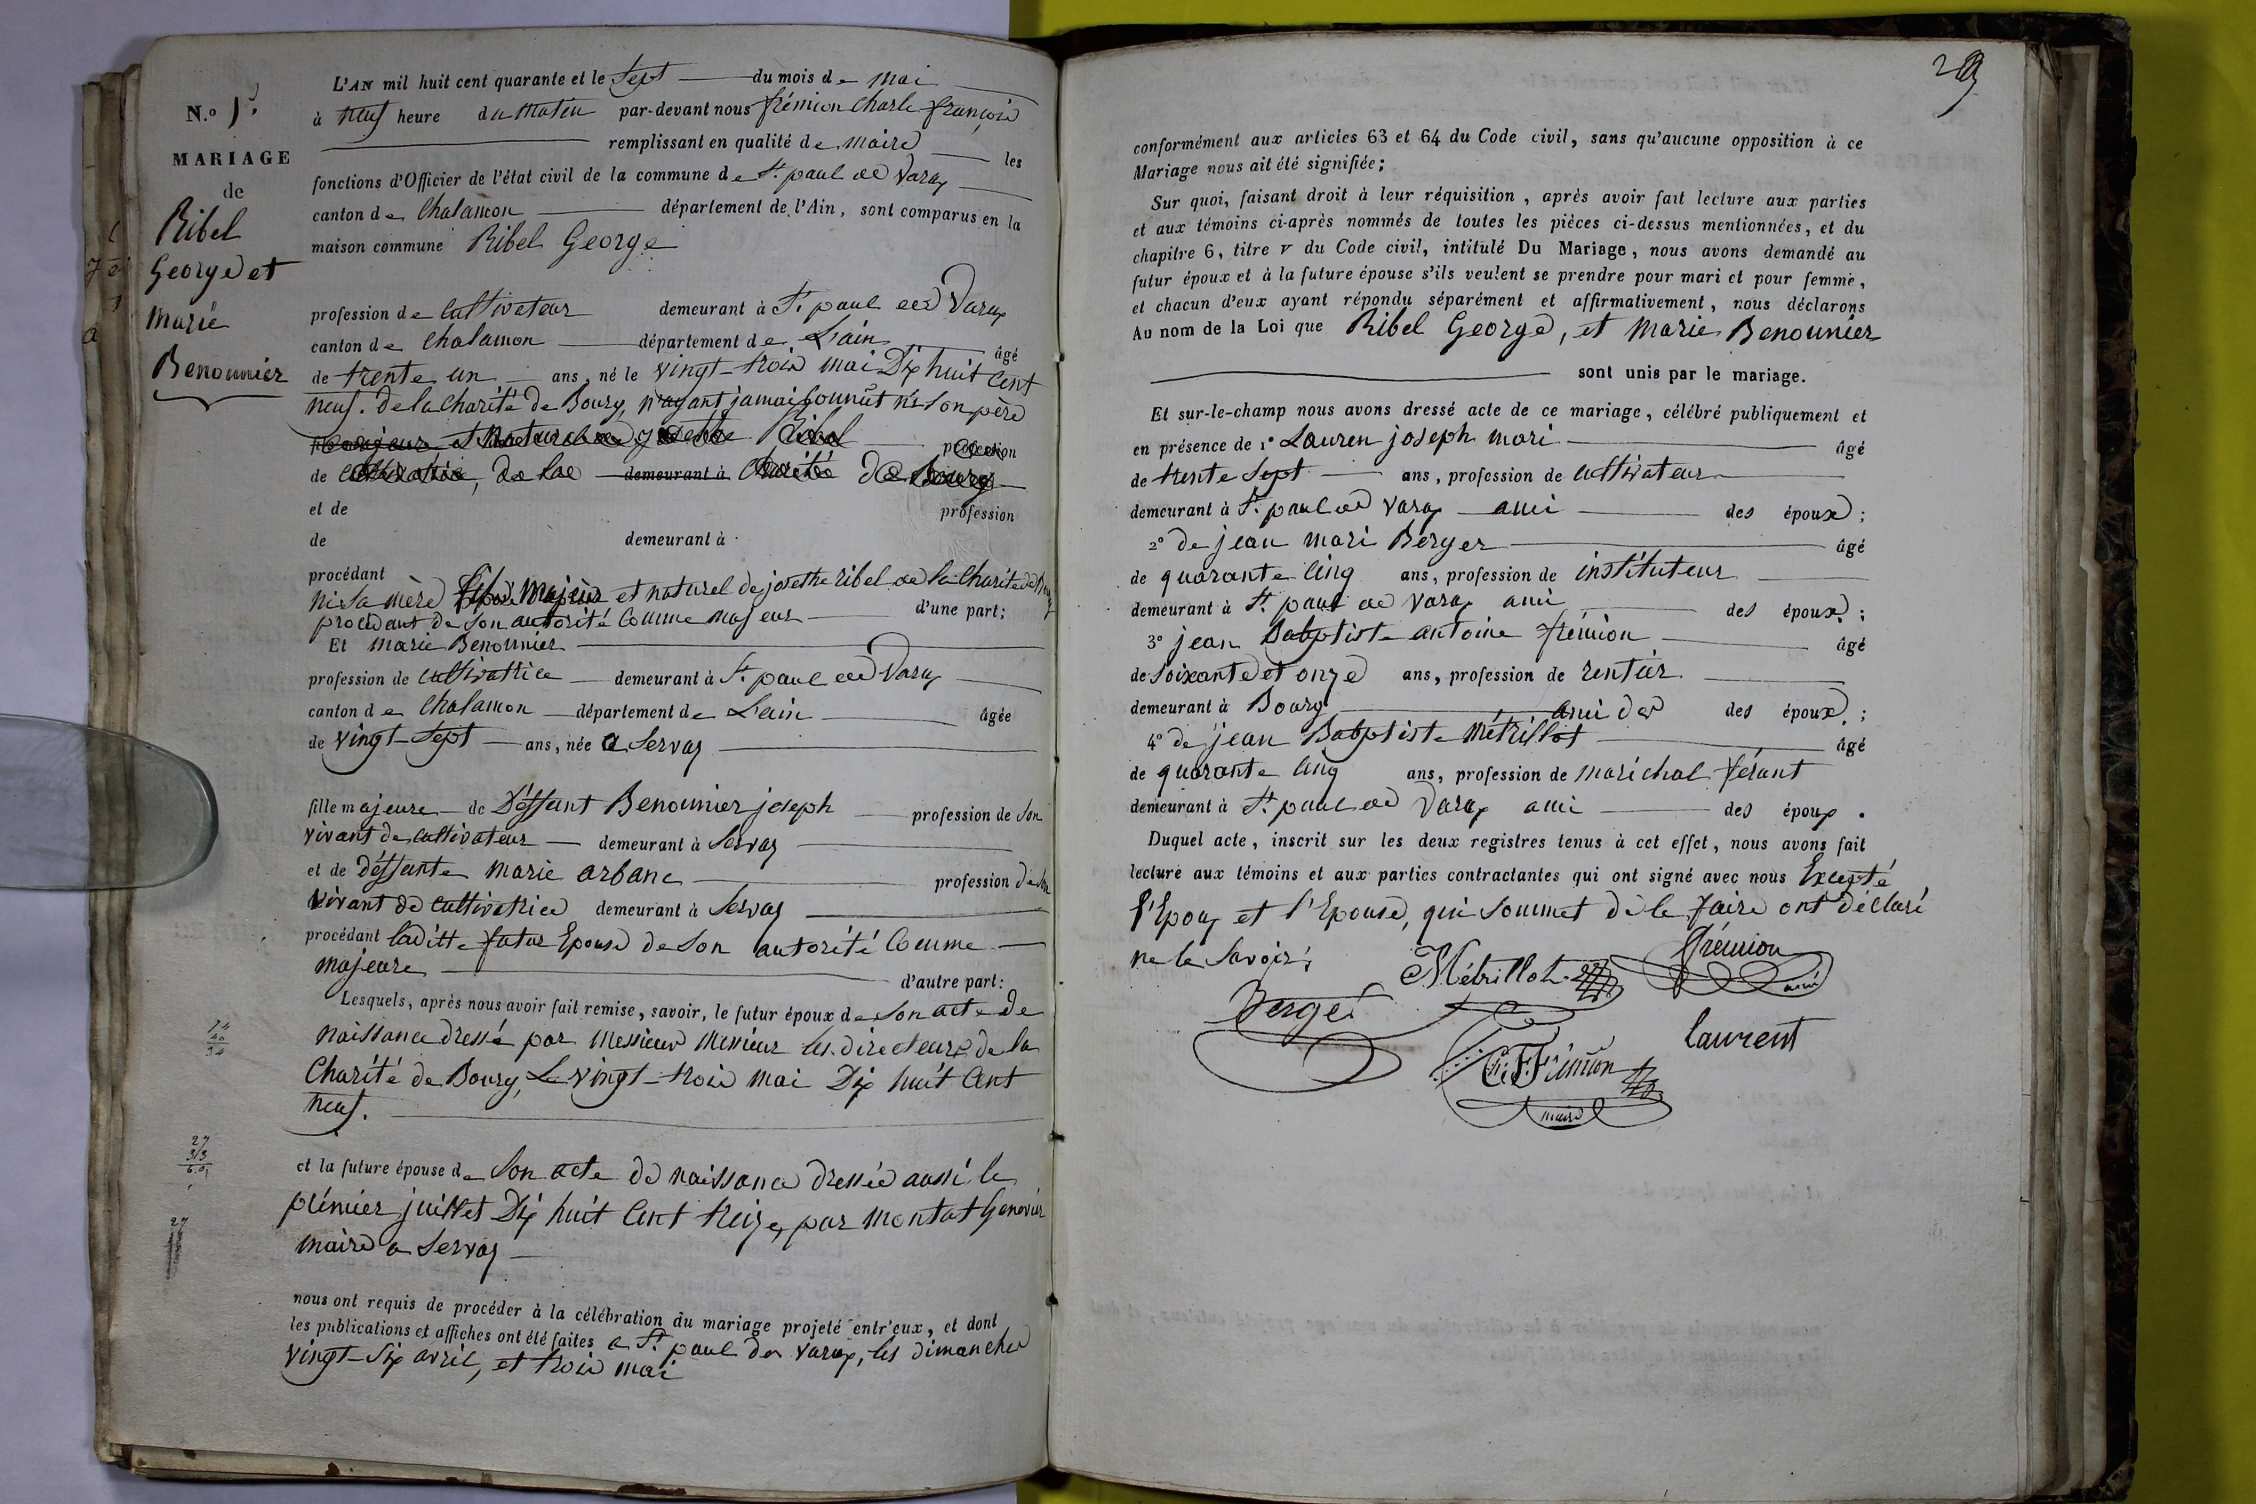 N.o
MARIAGE
de
Ribel
George et
marie
Benounier
L'AN mil huit cent quarante et le sept du mois de mai
à neuf heure du matin par-devant nous frémion charle françois
remplissant en qualité de maire les
fonctions d'Officier de l'état civil de la commune de St. paul de Varax
canton de Chalamon département de l'Ain, sont comparus en la
maison commune Ribel George
profession de cultivateur demeurant à St. paul de Varax
canton de chalamon département de L'ain âgé
de trente un ans, né le vingt-trois mai Dix huit cent
neuf. de la charité de Bourg, n'ayant jamais connût ni son père
profession
de de la demeurant à charité de Bourg
et de profession
de demeurant à
procédant
ni sa mère fils majeur et naturel de josethe ribel de la charité de Bourg
procédant de son autorité comme majeur d'une part;
Et marie Benounier
profession de cultivatrice demeurant à St. paul de Varax
canton de Chalamon département de L'ain âgée
de vingt-sept ans, née a Servas
fille majeure de Déffunt Benounier joseph profession de son
vivant de cultivateur demeurant à Servas
et de déffunte marie arbanc profession de son
vivant de cultivatrice demeurant à Servas
procédant laditte futur Epouse de son autorité Comme
majeure d'autre part:
Lesquels, après nous avoir fait remise, savoir, le futur époux de son acte de
naissance dressé par messieurs messieur les directeurs de la
Charité de Bourg, Le vingt-trois mai Dix huit cent
neuf.
27
313
27
et la future épouse de son acte de naissance dressée aussi le
prémier juillet Dix huit cent treize, par montat Genevier
maire a Servas
nous ont requis de procéder à la célébration du mariage projeté entr'eux, et dont
les publications et affiches ont été faites a St. paul de varax, les dimanches
vingt-six avril, et trois mai
29
conformément aux articles 63 et 64 du Code civil, sans qu'aucune opposition à ce
Mariage nous ait été signifiée;
Sur quoi, faisant droit à leur réquisition, après avoir fait lecture aux parties
et aux témoins ci-après nommés de toutes les pièces ci-dessus mentionnées, et du
chapitre 6, titre V du Code civil, intitulé Du Mariage, nous avons demandé au
futur époux et à la future épouse s'ils veulent se prendre pour mari et pour femme,
et chacun d'eux ayant répondu séparément et affirmativement, nous déclarons
Au nom de la Loi que Ribel George, et Marie Benounier
sont unis par le mariage.
Et sur-le-champ nous avons dressé acte de ce mariage, célébré publiquement et
en présence de 1° Lauren joseph mari âgé
de trente sept ans, profession de cultivateur
demeurant à St. paul de Varax ami des époux;
2° de jean mari Berger âgé
de quarante cinq ans, profession de instituteur
demeurant à St. paul de Varax ami des époux;
3° jean Babptiste antoine frémion âgé
de soixante et onze ans, profession de rentier
demeurant à Bourg ami des des époux;
4° de jean Babptiste métrillot âgé
de quarante cinq ans, profession de maréchal férant
demeurant à St. paul de Varax ami des époux.
Duquel acte, inscrit sur les deux registres tenus à cet effet, nous avons fait
lecture aux témoins et aux parties contractantes qui ont signé avec nous Excepté
l'Epoux et l'Epouse, qui sommet de le faire ont déclaré
ne le savoir;
Métrillot
frémion
ainé
Berger
laurent
Ch. F. Frémion
maire